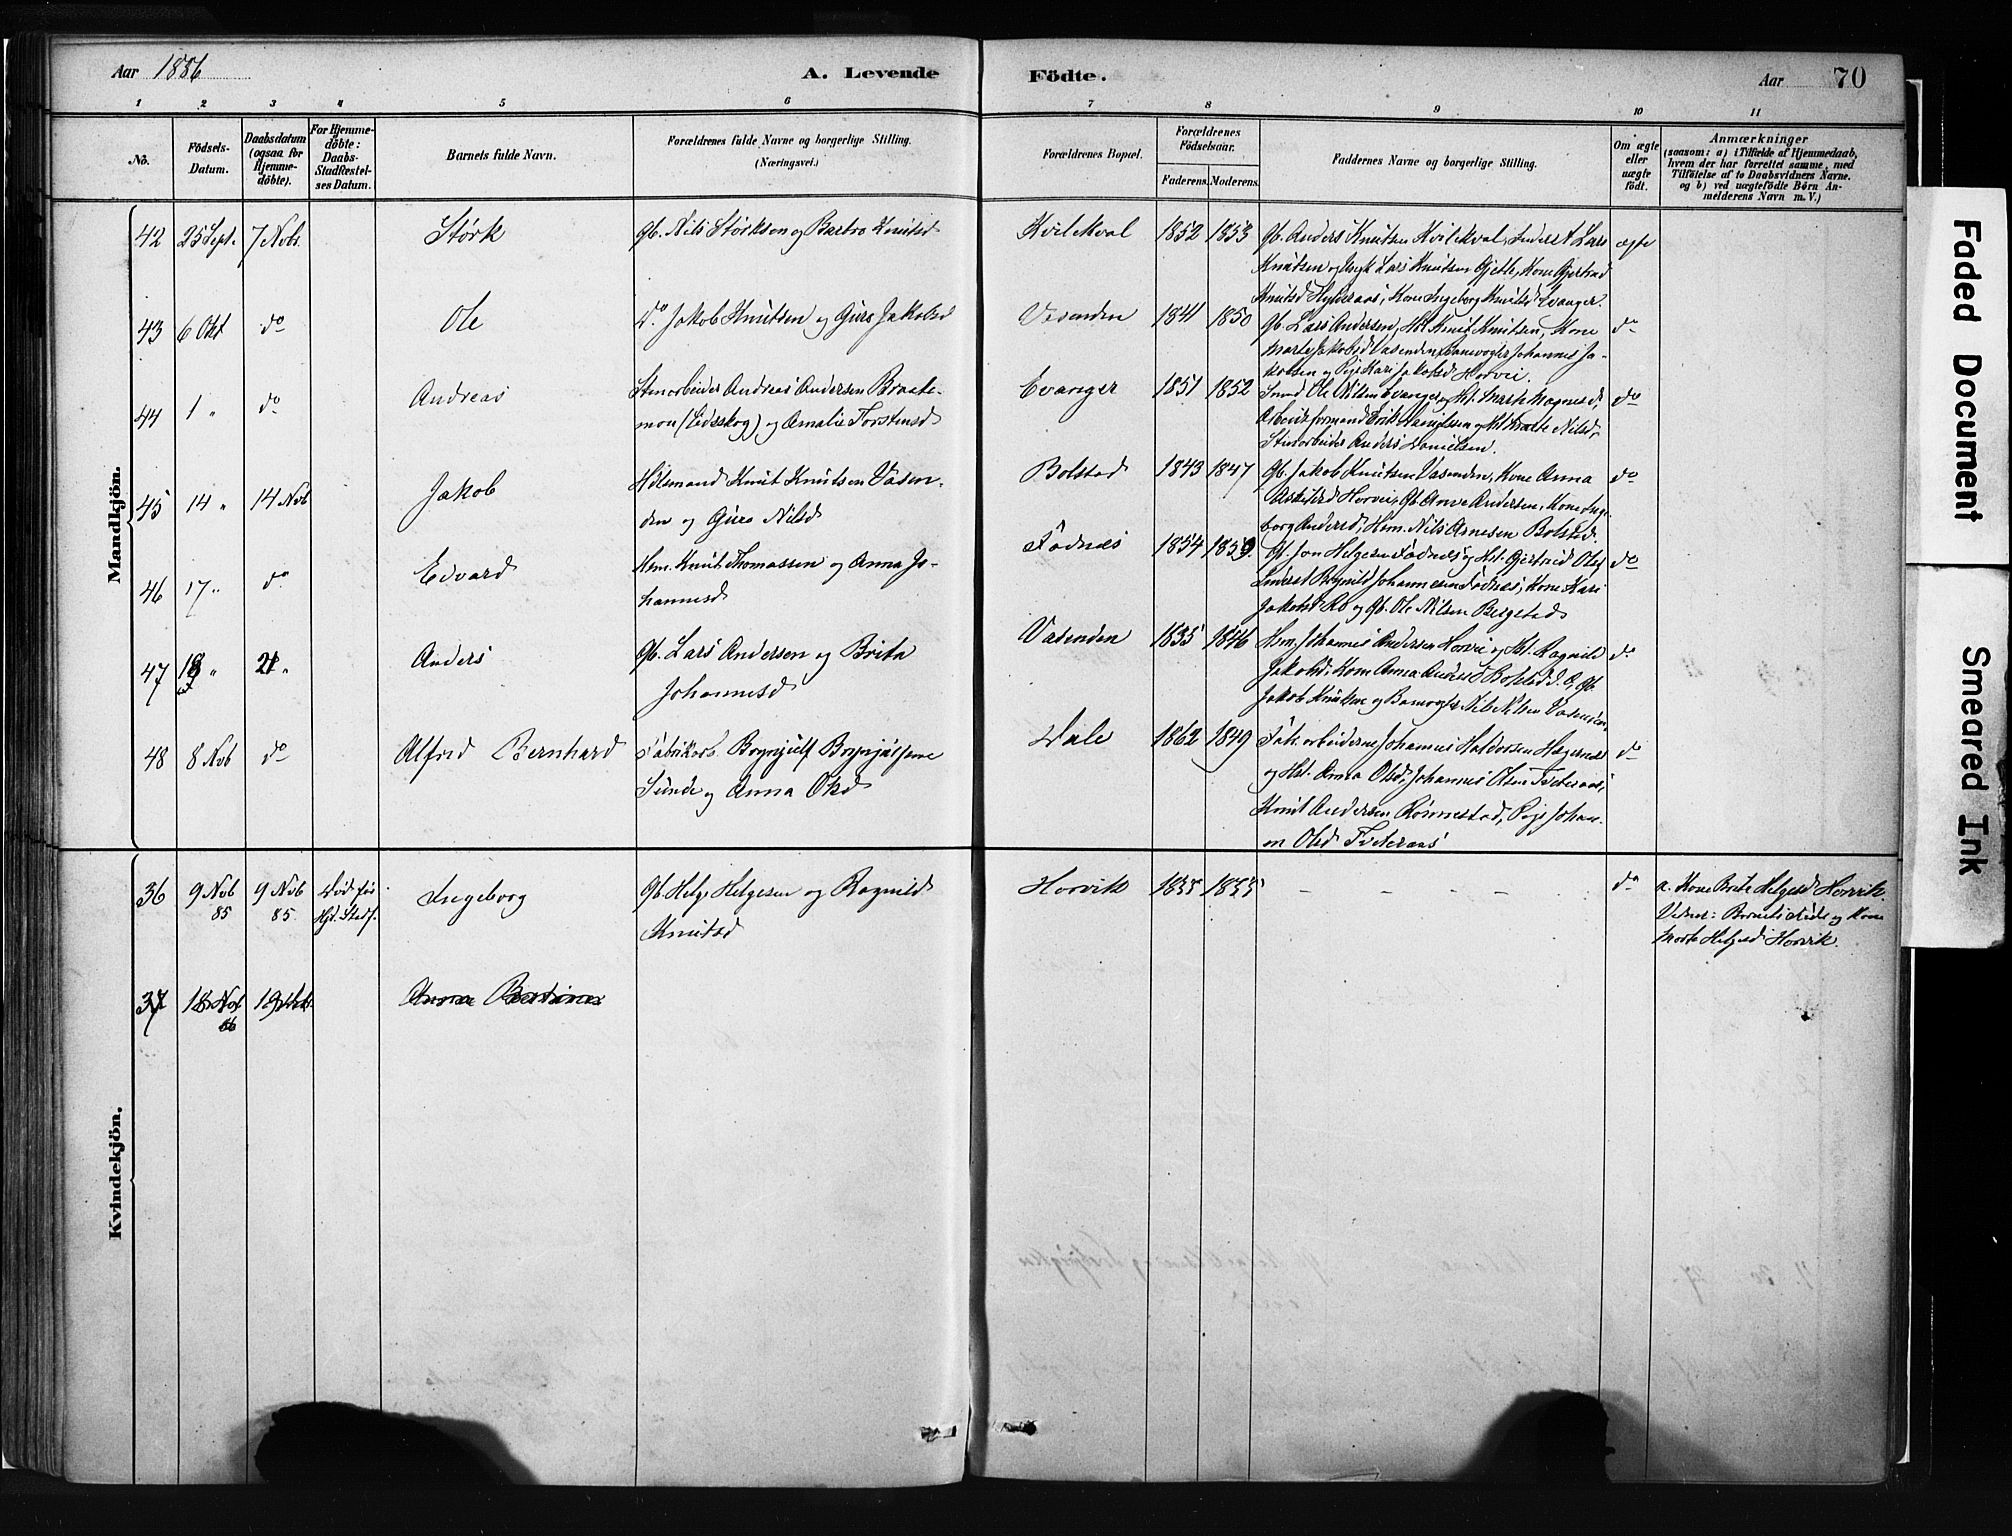 Aar 1886
A. Levende Födte.
Aar 70
1 2 3 4 5 6 7 8 9 10 11
No.
Födsels-Datum.
Daabsdatum (ogsaa for Hjemme-döbte).
For Hjemme-döbte: Daabs-Stadfæstel-ses Datum.
Barnets fulde Navn.
Forældrenes fulde Navne og borgerlige Stilling. (Næringsvei.)
Forældrenes Bopæl.
Forældrenes Födselsaar.
Faderens. Moderens.
Faddernes Navne og borgerlige Stilling.
Om ægte eller uægte födt.
Anmærkninger
(saasom: a) i Tilfælde af Hjemmedaab,
hvem der har forrettet samme, med
Tilföielse af to Daabsvidners Navne.
og b) ved uægtefödte Börn An-
melderens Navn m. V.)
Mandkjön.
42 25 Sept. 7 Nobr. Størk Gb. Nils Størksen og Knutsd Kvilekval 1852 1853 Gb. Anders Knutsen Kvilekval, Lars ægte
Knutsen og Lars Knutsen Gjelle, Kone Gjertrud
Knutsd Kone Ingeborg Knutsd Evanger.
43 6 Okt do Ole Do Jakob Knutsen og Guro Jakobsd Vasenden 1841 1850 Gb. Lars Andersen, Knut Knutsen, Kone do
Marte Jakobsd Vasenden, Banevogter Johannes Ja-
kobsen og Pige Kari Jakobsd Horvei.
44 1 " do Andreas Stenarbeider Andreas Andersen Braate-
mon (Eidsskog) og Amalie Torstensd Evanger 1851 1852 Ole Nilsen Evanger og Hst. Marte Magnesd, do
Arbeidsformand Erik og Hst. Nilsd,
Stenarbeider Anders Danielsen.
45 14 " 14 Nob Jakob Huusmand Knut Knutsen Vasen-
den og Guro Nilsd Bolstad 1843 1847 Gb. Jakob Knutsen Vasenden, Kone Anna do
Horvei, Gb. Arne Andersen, Kone Inge-
borg Andersd, Hsm. Nils Arnesen Bolstad.
46 17 " do Edvard Hsm. Knut Thomassen og Anna Jo-
hannesd Fadnæs 1854 1859 Gb. Jon Helgesen Fadnæs og Hst. Gjertrud Olsd do
Johannesen Fadnæs, Kone Kari
Jakobsd Rö og Gb. Ole Nilsen Bergstad
47 18 " 21 " Anders Gb. Lars Andersen og Brita
Johannesd Vasenden 1835 1846 Hsm Johannes Andersen Horvei og Hst. Ragnild do
Jakobsd, Kone Anna Andersd Bolstad Gb.
Jakob Knutsen og Banevogter Nils Nilsen Vasenden
48 8 Nob do Alfred Bernhard Fabrikarb. Brynjulf Brynjulfsen
Sunde og Anna Olsd Dale 1862 1849 Fab. arbeiderne Johannes Haldorsen do
og Hst. Anna Olsd, Johannes Olsen Tveteraas,
Knut Andersen Rönnestad, Pige Johan-
ne Olsd Tveteraas
Kvindekjön.
36 9 Nob 85 9 Nob 85 Död för Hjd. Stadf. Ingeborg Gb. Helge Helgesen og Ragnild
Knutsd Horvik 1855 1855 - - - - do a. Kone Brita Helgesd Horvik.
Vidner: Barnets Fader og Kone
Marta Helgesd Horvik.
37 18 Nob 86 Anna Bertine
Faded Document
Smeared Ink